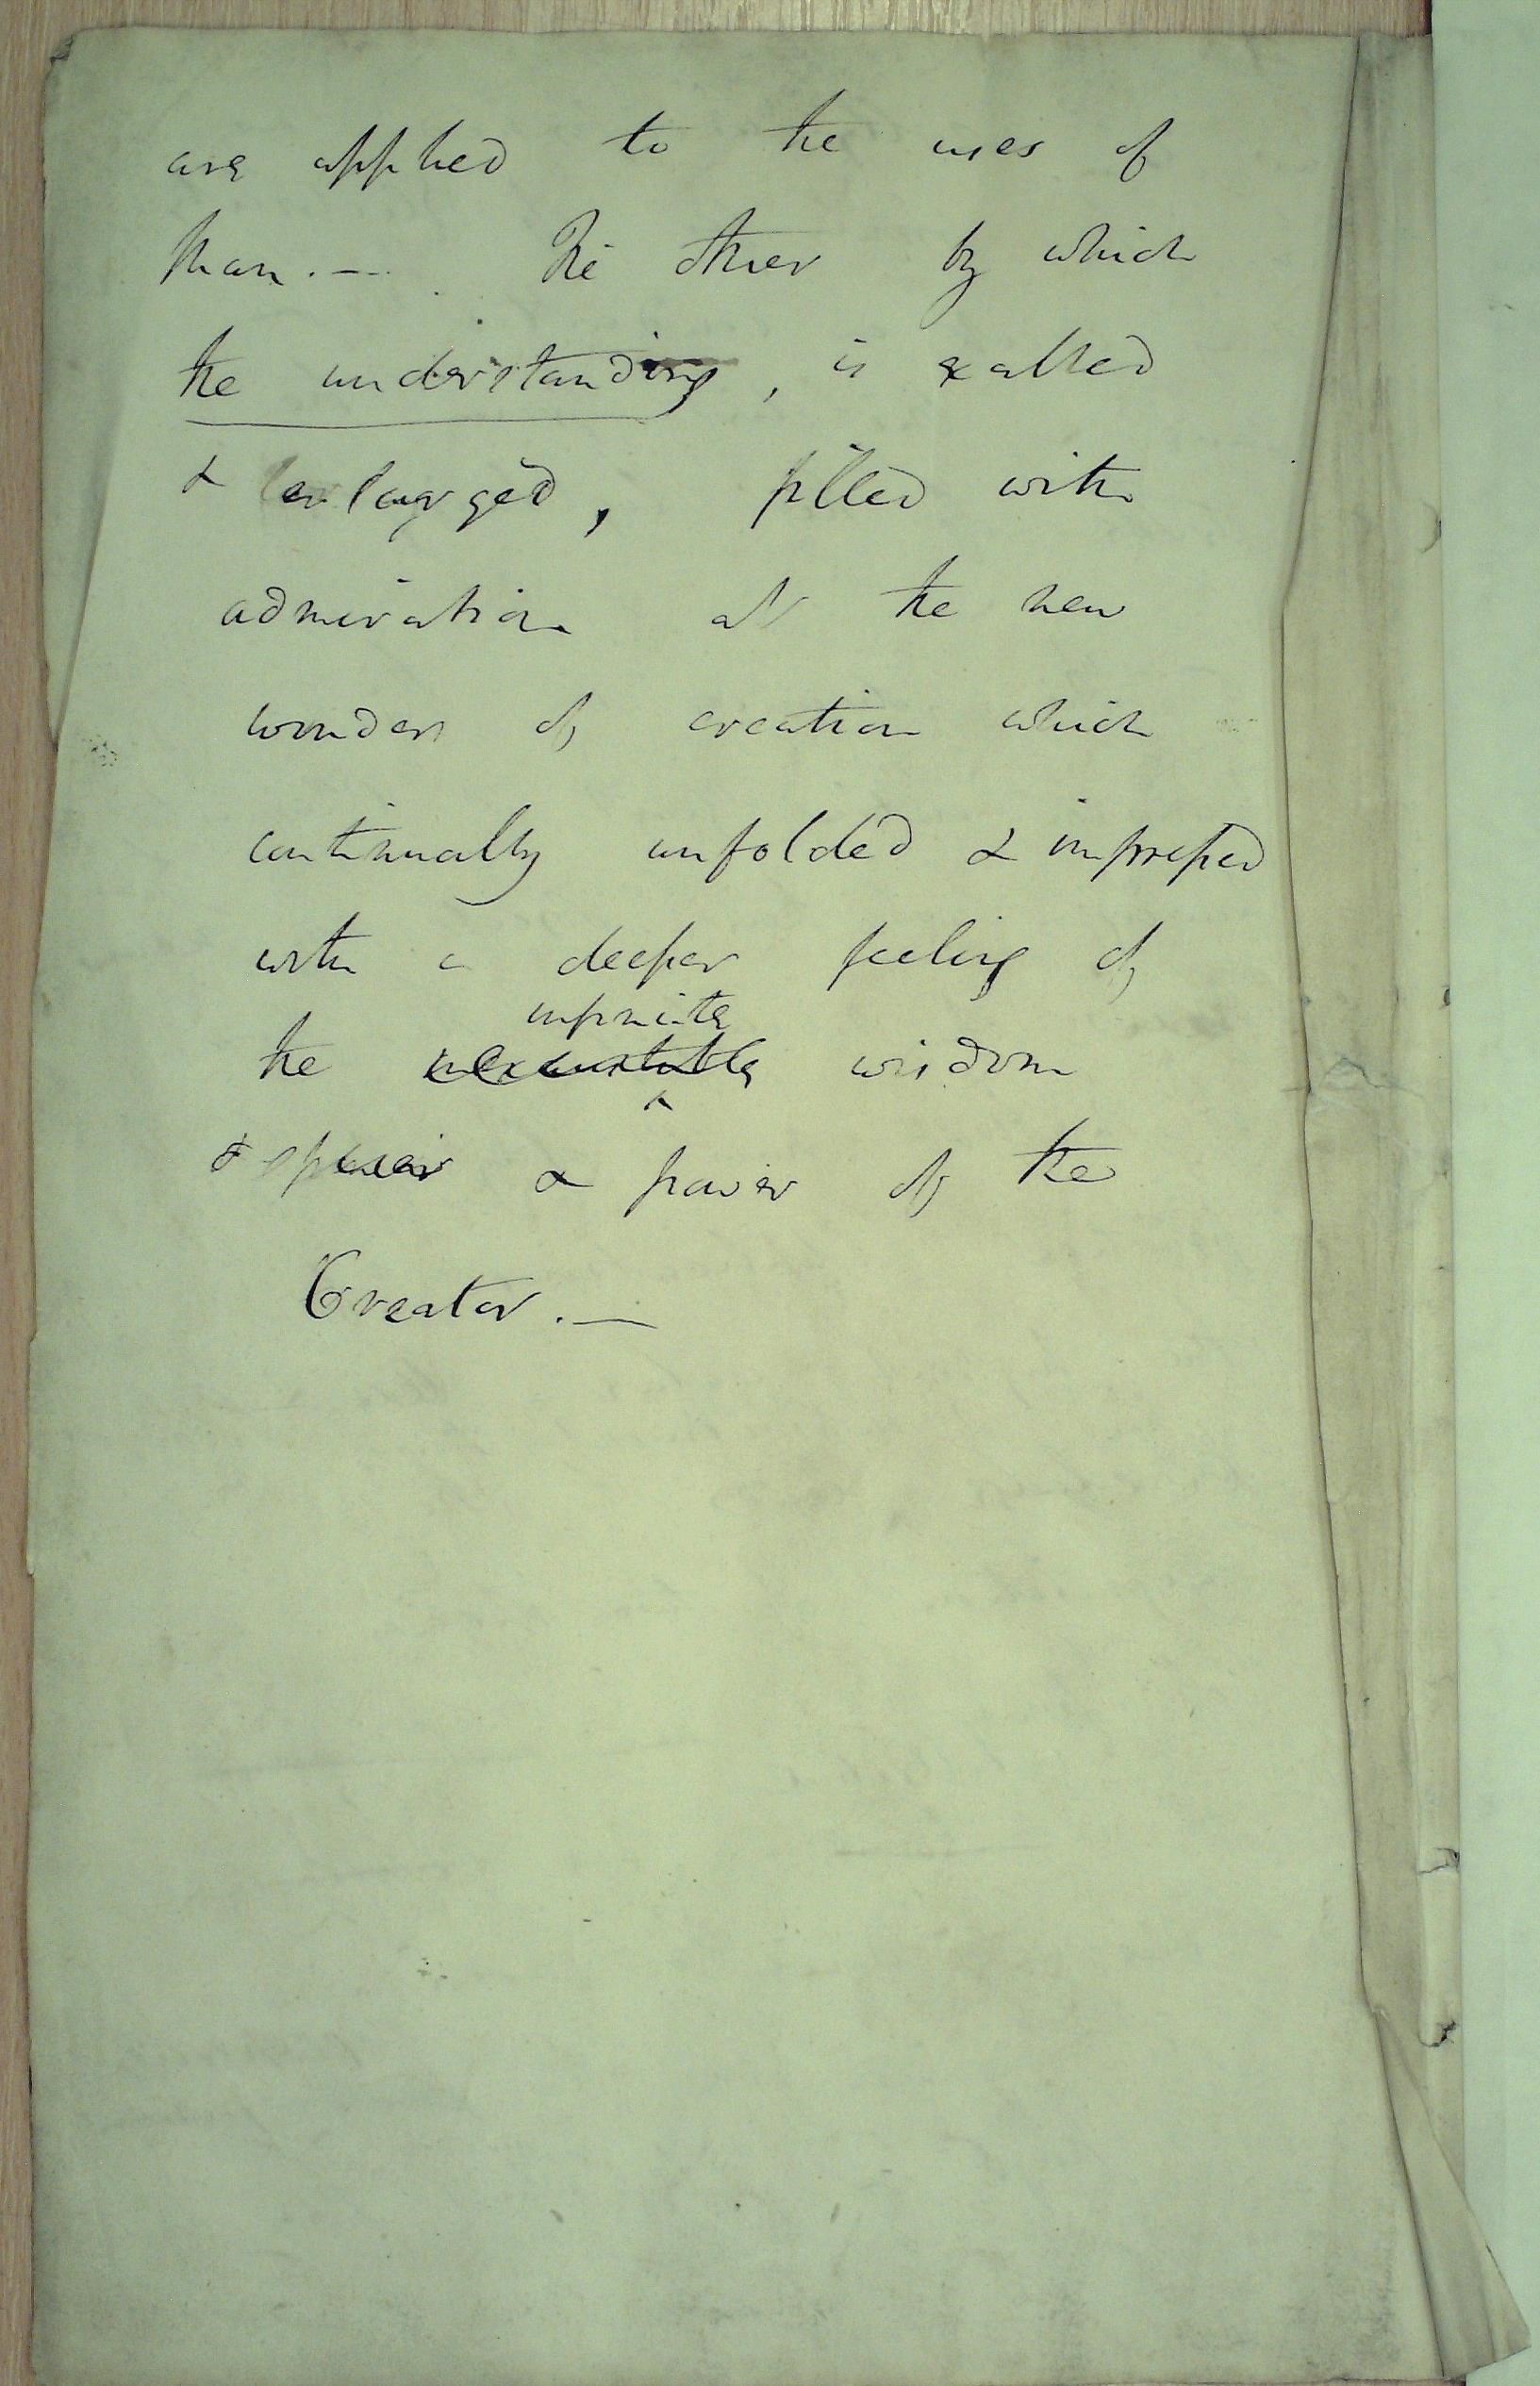 are applied to the uses of
Man. — The other by which
the understanding, is exalted
& enlarged, filled with
admiration at the new
wonders of creation which
continually unfolded & impressed
with a deeper feeling of
infinite
the wisdom
& power of the
Creator. —